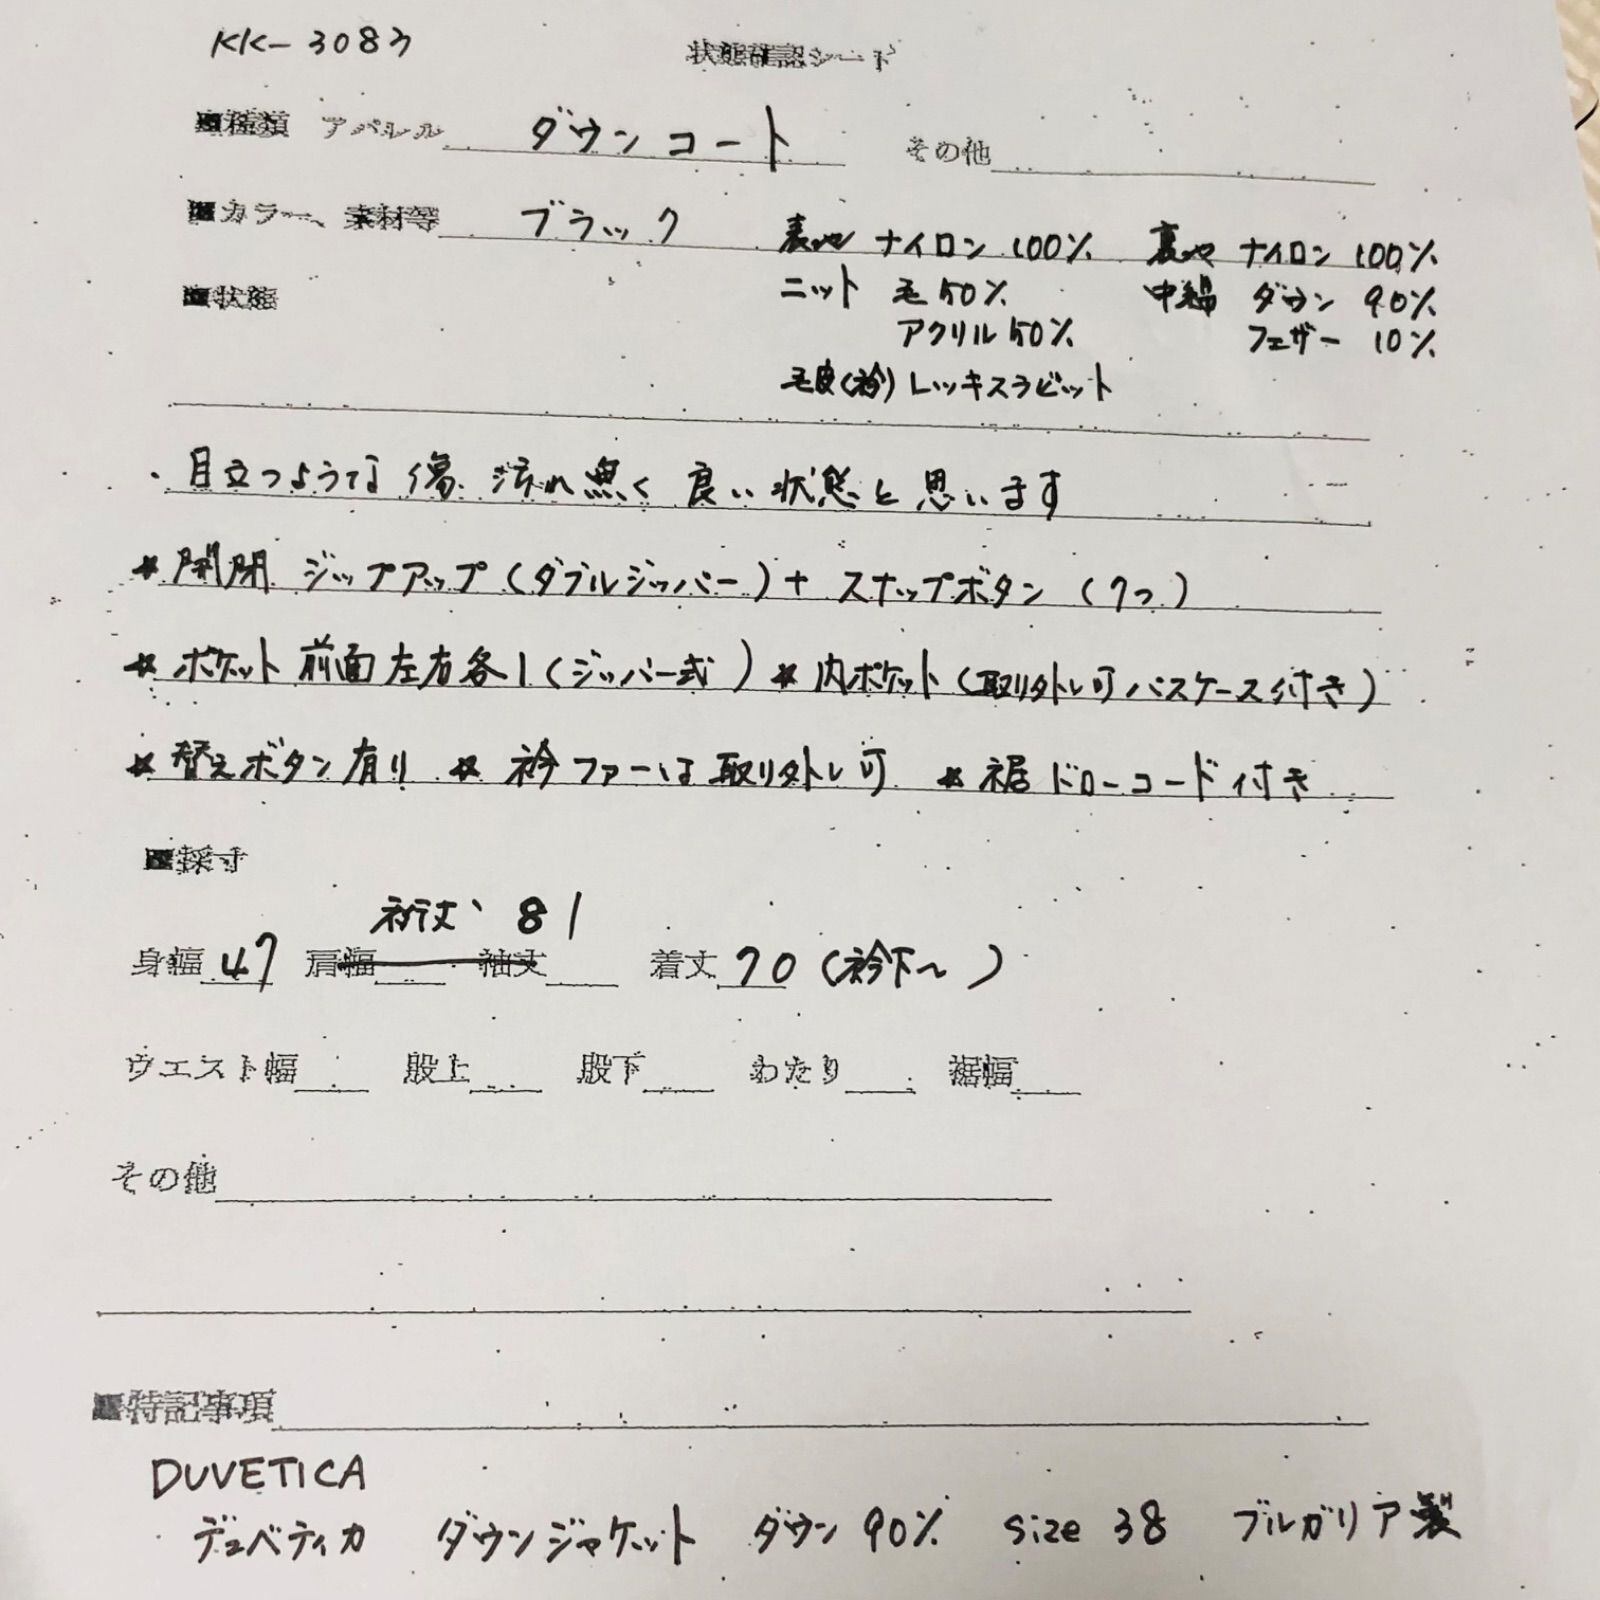 KK-3083
状態確認シート
■種類 アパレル ダウンコート その他
■カラー、素材等 ブラック 表地 ナイロン 100% 裏地 ナイロン 100%
■状態 ニット 毛50% 中綿 ダウン 90%
アクリル50% フェザー 10%
毛皮(衿) レッキスラビット
・目立つような傷、汚れ無く 良い状態と思います
*開閉 ジップアップ(ダブルジッパー)+ スナップボタン (7つ)
*ポケット 前面左右各1(ジッパー式) *内ポケット(取り外し可パスケース付き)
*替えボタン有り *衿ファーは取り外し可 *裾ドローコード付き
■採寸
裄丈、81
身幅 47 肩幅 袖丈 着丈 70(衿下〜)
ウエスト幅 股上 股下 わたり 裾幅
その他
■特記事項
DUVETICA
デュベティカ ダウンジャケット ダウン90% size 38 ブルガリア製